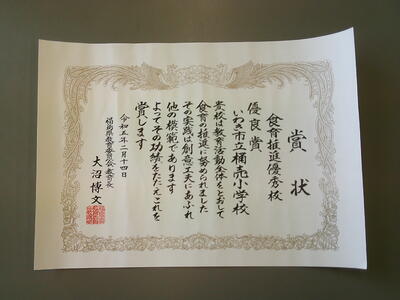 賞状
食育推進優秀校
優良賞
いわき市立桶売小学校
貴校は教育活動全体をとおして
食育の推進に努められました
その実践は創意工夫にあふれ
他の模範であります
よってその功績をたたえこれを
賞します
令和五年二月十四日
福島県教育委員会教育長
大沼博文